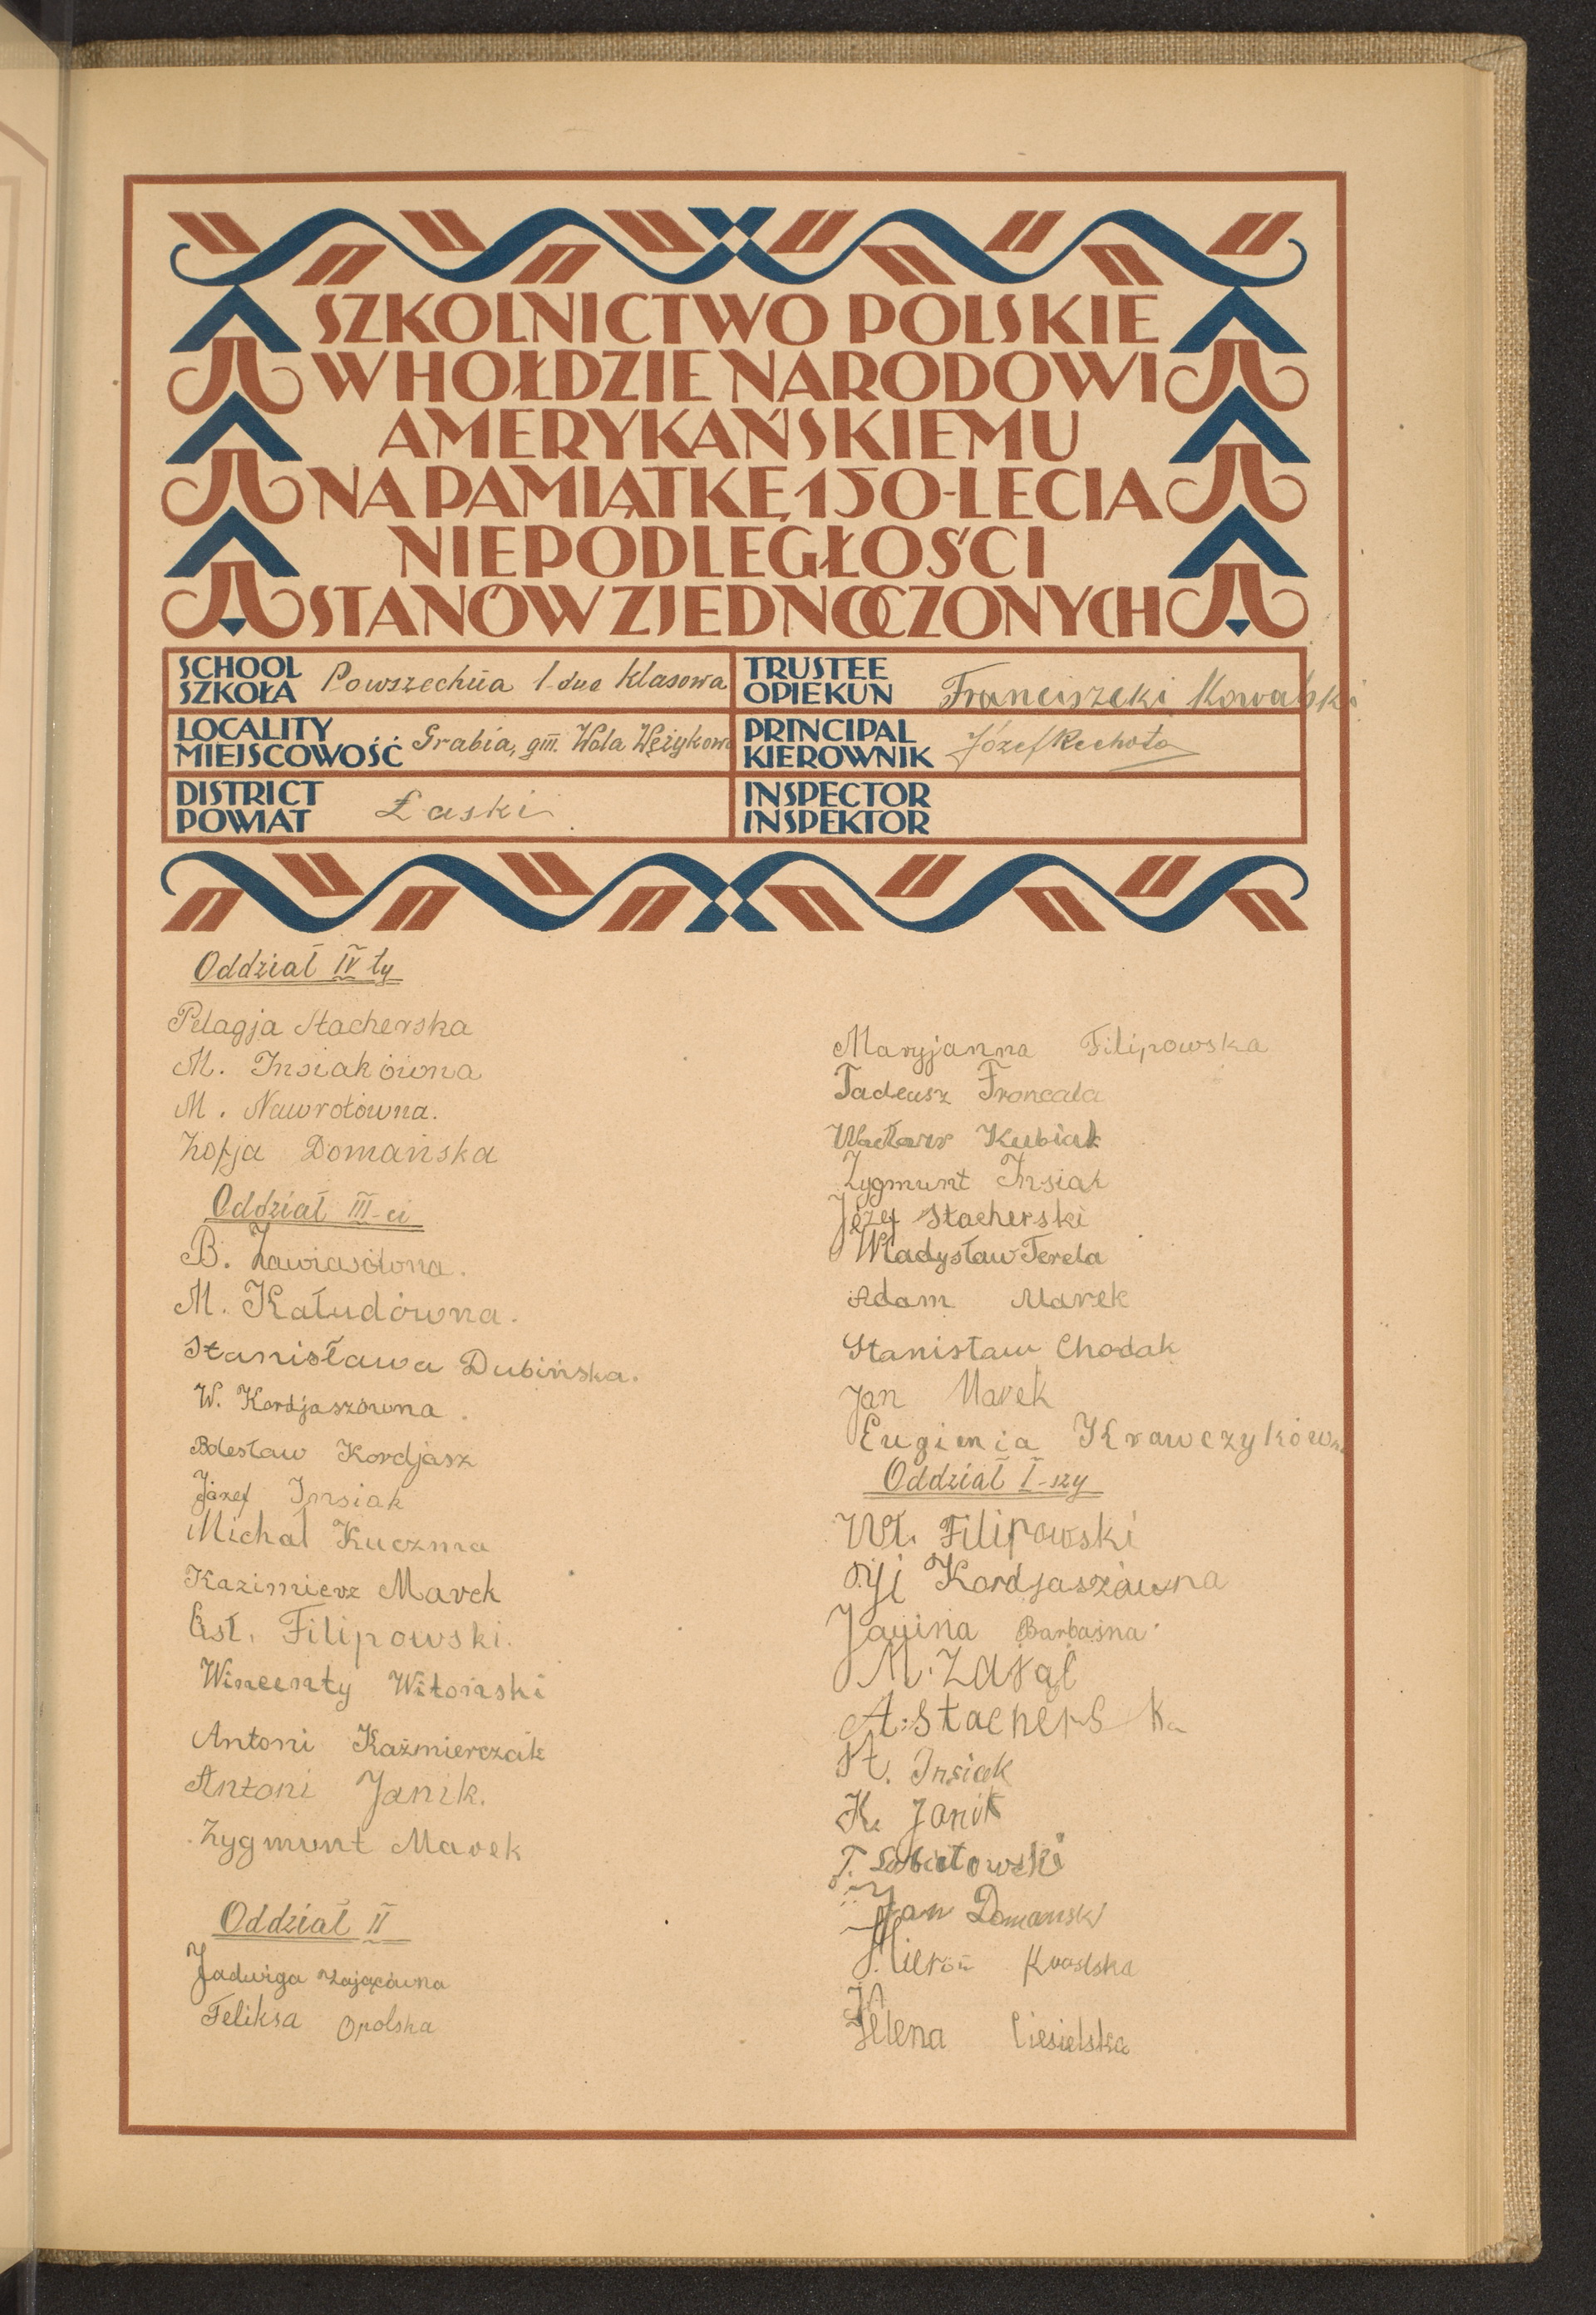 SZKOLNICTWO POLSKIE
W HOŁDZIE NARODOWI
AMERYKAŃSKIEMU
NA PAMIĄTKĘ 150-LECIA
NIEPODLEGŁOŚCI
STANÓW ZJEDNOCZONYCH
SCHOOL
SZKOŁA
Powszechna 1-dno klasowa
TRUSTEE
OPIEKUN
Franciszeki Kowalski
LOCALITY
MIEJSCOWOŚĆ
Grabia, gm. Wola Wężykowa
PRINCIPAL
KIEROWNIK
Józef Rechota
DISTRICT
POWIAT
Łaski
INSPECTOR
INSPEKTOR
Oddział IV ty
Pelagja Stacherska
M. Insiakówna
M. Nawrotówna.
Zofja Domańska
Oddział III-ci
B. Zawiasówna.
M. Kałudówna.
Stanisława Dubińska.
W. Kordjaszówna.
Bolesław Kordjasz
Józef Insiak
Michał Kuczma
Kazimierz Marek
Filipowski.
Wincenty Witoński
Antoni Kaźmierczak
Antoni Janik.
Zygmunt Marek
Oddział II
Jadwiga Zającówna
Feliksa Opolska
Maryjanna Filipowska
Tadeusz Froncala
Wacław Kubiak
Zygmunt Insiak
Józef Stacherski
Władysław Terela
Adam Marek
Stanisław Chodak
Jan Marek
Eugimia Krawczykówna
Oddział I-szy
Wł. Filipowski
Kordjaszówna
Janina
M. Zając
A. Stacherska
St. Insiak
K. Janik
T.
Jan Domanski
Helena Ciesielska